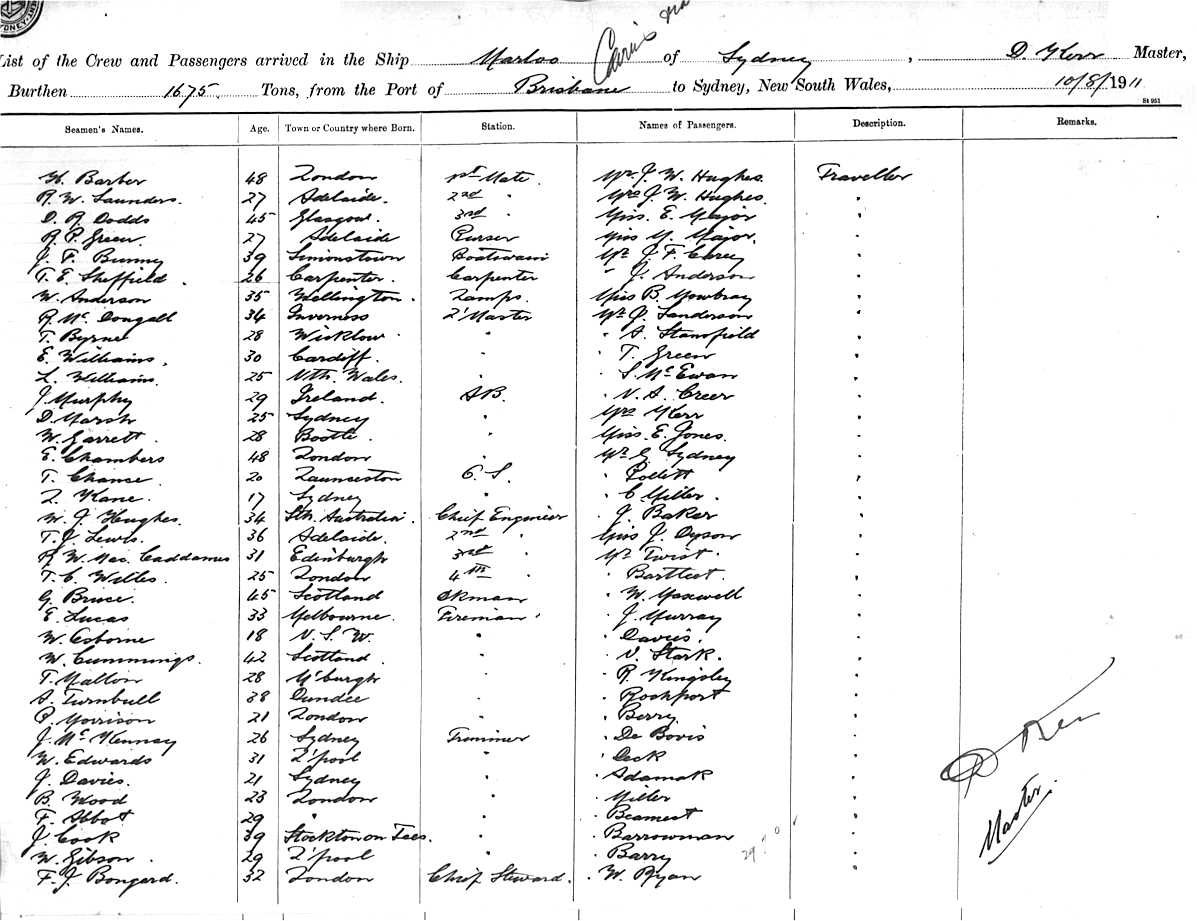 List of the Crew and Passengers arrived in the Ship Marloo of Sydney, D. Kerr Master,
Burthen 1675 Tons, from the Port of Brisbane to Sydney, New South Wales, 10/8/1911
St 951
Seamen's Names. Age. Town or Country where Born. Station. Names of Passengers. Description. Remarks.
H. Barber 48 London 1st Mate. Mr J. W. Hughes. Traveller
R. W. Saunders. 27 Adelaide. 2nd " Mrs J. W. Hughes. "
D. R. Dodds 45 Glasgow. 3rd " Miss. E. Major "
R. P. Green. 27 Adelaide Purser Miss M. Major. "
J. F. Bunny 39 Simonstown Boatswain Mr J. F. Carey "
T. E. Sheffield. 26 Carpenter. Carpenter " J. Anderson "
W. Anderson 35 Wellington. Lamps. Miss B. Mowbray "
R. Mc Dougall 34 Inverness L'Master Mr J. Sanderson "
T. Byrne 28 Wicklow. " " A. Stansfield "
E. Williams. 30 Cardiff. " " T. Green "
L. Williams. 25 Nth. Wales. " " S. Mc Ewan "
J. Murphy 29 Ireland. AB. " N. A. Creer "
D. Marsh 25 Sydney " Mrs Kerr "
W. Garrett. 28 Bootle. " Miss. E. Jones. "
E. Chambers 48 London " Mr G. Sydney "
T. Chance. 20 Launceston O. S. " Pollett "
L. Kane. 17 Sydney " " C. Miller. "
W. J. Hughes. 34 Sth. Australia. Chief Engineer " J. Baker "
T. J. Lewis. 36 Adelaide. 2nd " Miss J. Dyson "
R. W. Mac. Caddames 31 Edinburgh 3rd " Mr Twist. "
T. C. Willes. 25 London 4th " " Bartleet. "
G. Bruce. 45 Scotland Dkman " W. Maxwell "
E. Lucas 33 Melbourne. Fireman. " J. Murray "
W. Osborne 18 N. S. W. " " Davies. "
W. Cummings. 42 Scotland. " " V. Stark. "
T. Mallon 28 M'burgh " " R. Kingsley "
A. Turnbull 38 Dundee " " Rockport "
P. Morrison 21 London " " Berry "
J. Mc Kennay 26 Sydney Trimmer " De Bovis "
W. Edwards 31 L'pool " " Deck "
J. Davies. 21 Sydney " " Adamak "
B. Wood 23 London " " Miller "
F. Abbot 29 " " " Beamest "
J. Cook 39 Stockton on Tees. " " Barrowman "
W. Gibson. 29 L'pool " " Barry "
F. J. Bongard. 32 London Chief Steward. " W. Ryan "
D Kerr
Master.